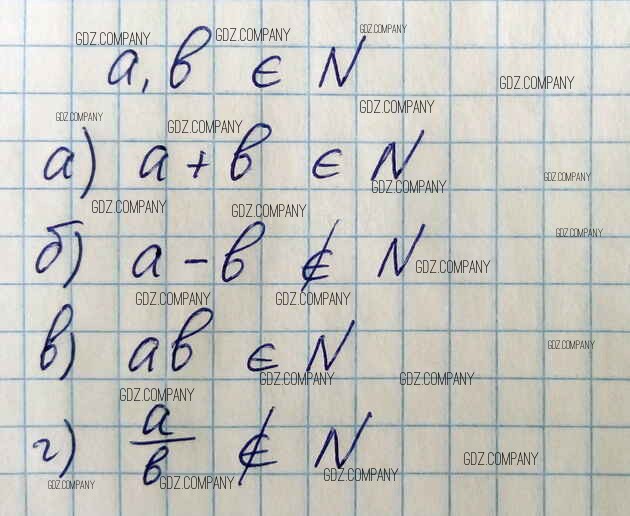 GDZ.COMPANY GDZ.COMPANY GDZ.COMPANY
a, b ∈ N GDZ.COMPANY
GDZ.COMPANY GDZ.COMPANY GDZ.COMPANY
а) a + b ∈ N GDZ.COMPANY
GDZ.COMPANY
GDZ.COMPANY GDZ.COMPANY
GDZ.COMPANY
б) a - b ∉ N GDZ.COMPANY
GDZ.COMPANY GDZ.COMPANY
в) ab ∈ N GDZ.COMPANY
GDZ.COMPANY GDZ.COMPANY
GDZ.COMPANY
г) a/b ∉ N GDZ.COMPANY
GDZ.COMPANY GDZ.COMPANY GDZ.COMPANY